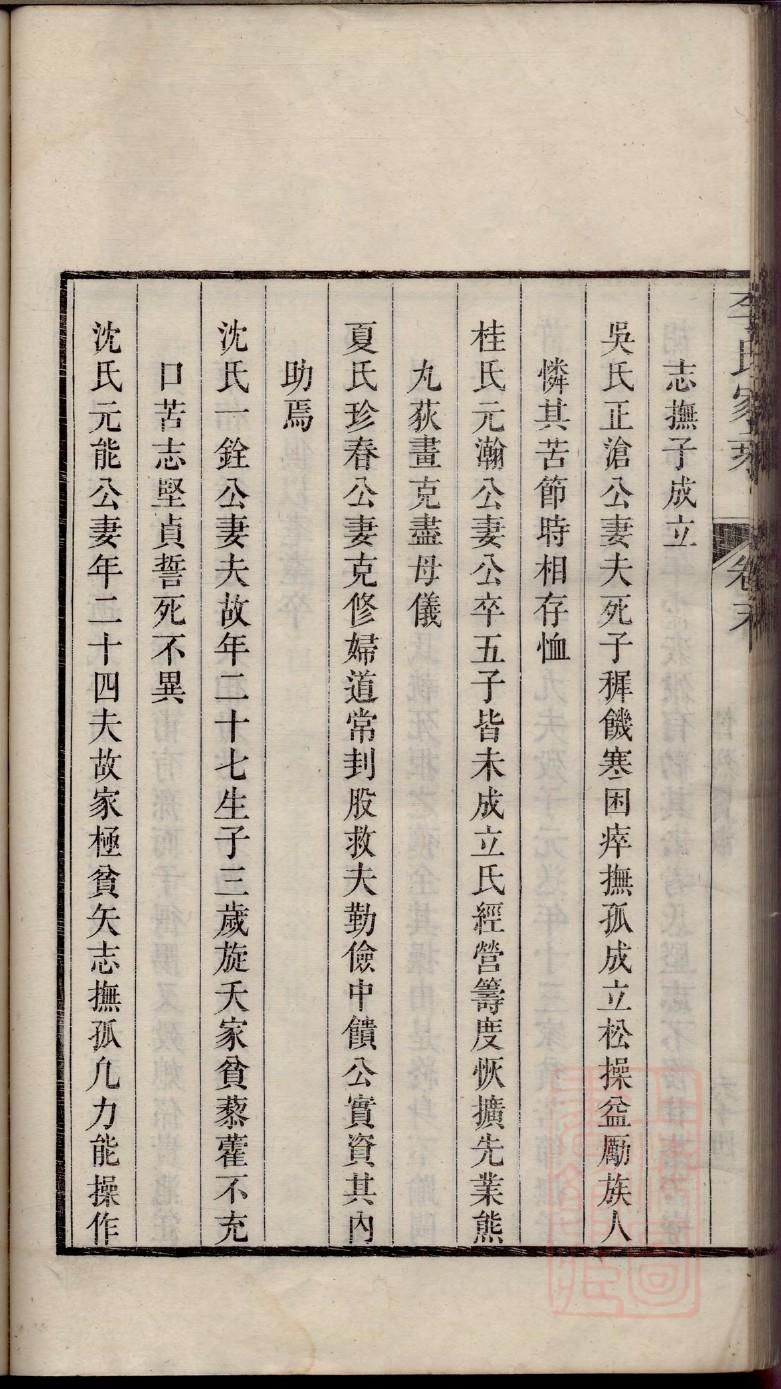 李氏家乘 卷末
志撫子成立
吳氏正滄公妻夫死子穉饑寒困瘁撫孤成立松操益勵族人
憐其苦節時相存恤
桂氏元瀚公妻公卒五子皆未成立氏經營籌度恢擴先業熊
丸荻畫克盡母儀
夏氏珍春公妻克修婦道常刲股救夫勤儉中饋公實資其內
助焉
沈氏一銓公妻夫故年二十七生子三歲旋夭家貧藜藿不充
口苦志堅貞誓死不異
沈氏元能公妻年二十四夫故家極貧矢志撫孤凢力能操作